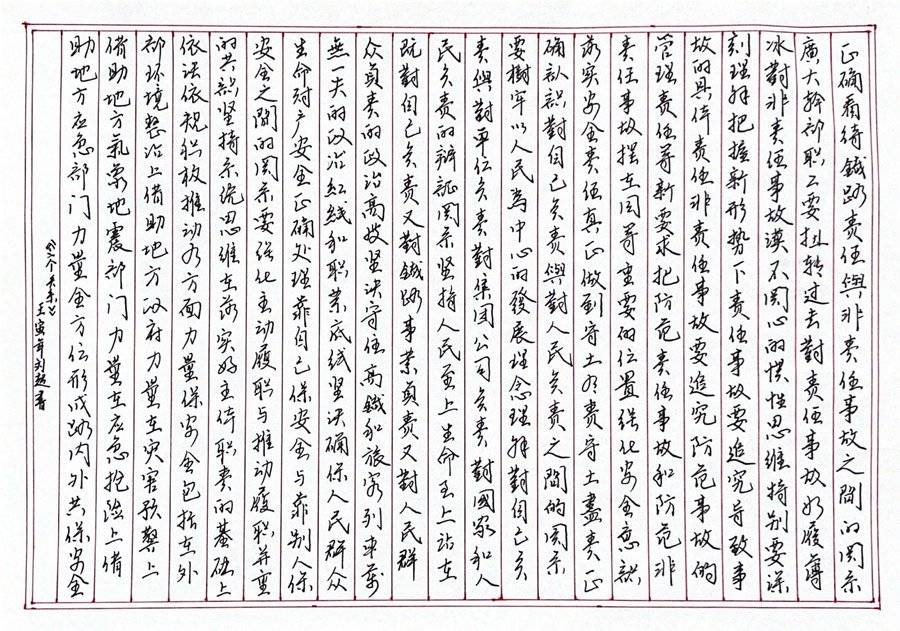 正确看待鐵路責任與非責任事故之間的関系
廣大幹部职工要扭转过去對責任事故如履薄
冰對非責任事故漠不関心的惯性思维特别要深
刻理解把握新形势下責任事故要追究导致事
故的具体責任非責任事故要追究防范事故的
管理責任等新要求把防范責任事故和防范非
責任事故摆在同等重要的位置强化安全意識
落实安全責任真正做到守土有責守土盡責正
确認識對自己负責與對人民负責之間的関系
要樹牢以人民為中心的發展理念理解對自己负
責與對单位负責對集团公司负責對國家和人
民负責的辨証関系坚持人民至上生命至上站在
既對自己负責又對鐵路事業負責又對人民群
众負責的政治高度坚决守住高鐵和旅客列車萬
無一失的政治红线和职業底线坚决确保人民群众
生命财产安全正确处理靠自己保安全与靠别人保
安全之間的関系要强化主動履职与推動履职并重
的共識坚持系统思维在落实好主体职責的基础上
依法依规积极推动各方面力量保安全包括在外
部环境整治上借助地方政府力量在灾害预警上
借助地方氣象地震部门力量在应急抢险上借
助地方应急部门力量全方位形成路内外共保安全
《三个关系》
壬寅年刘超書